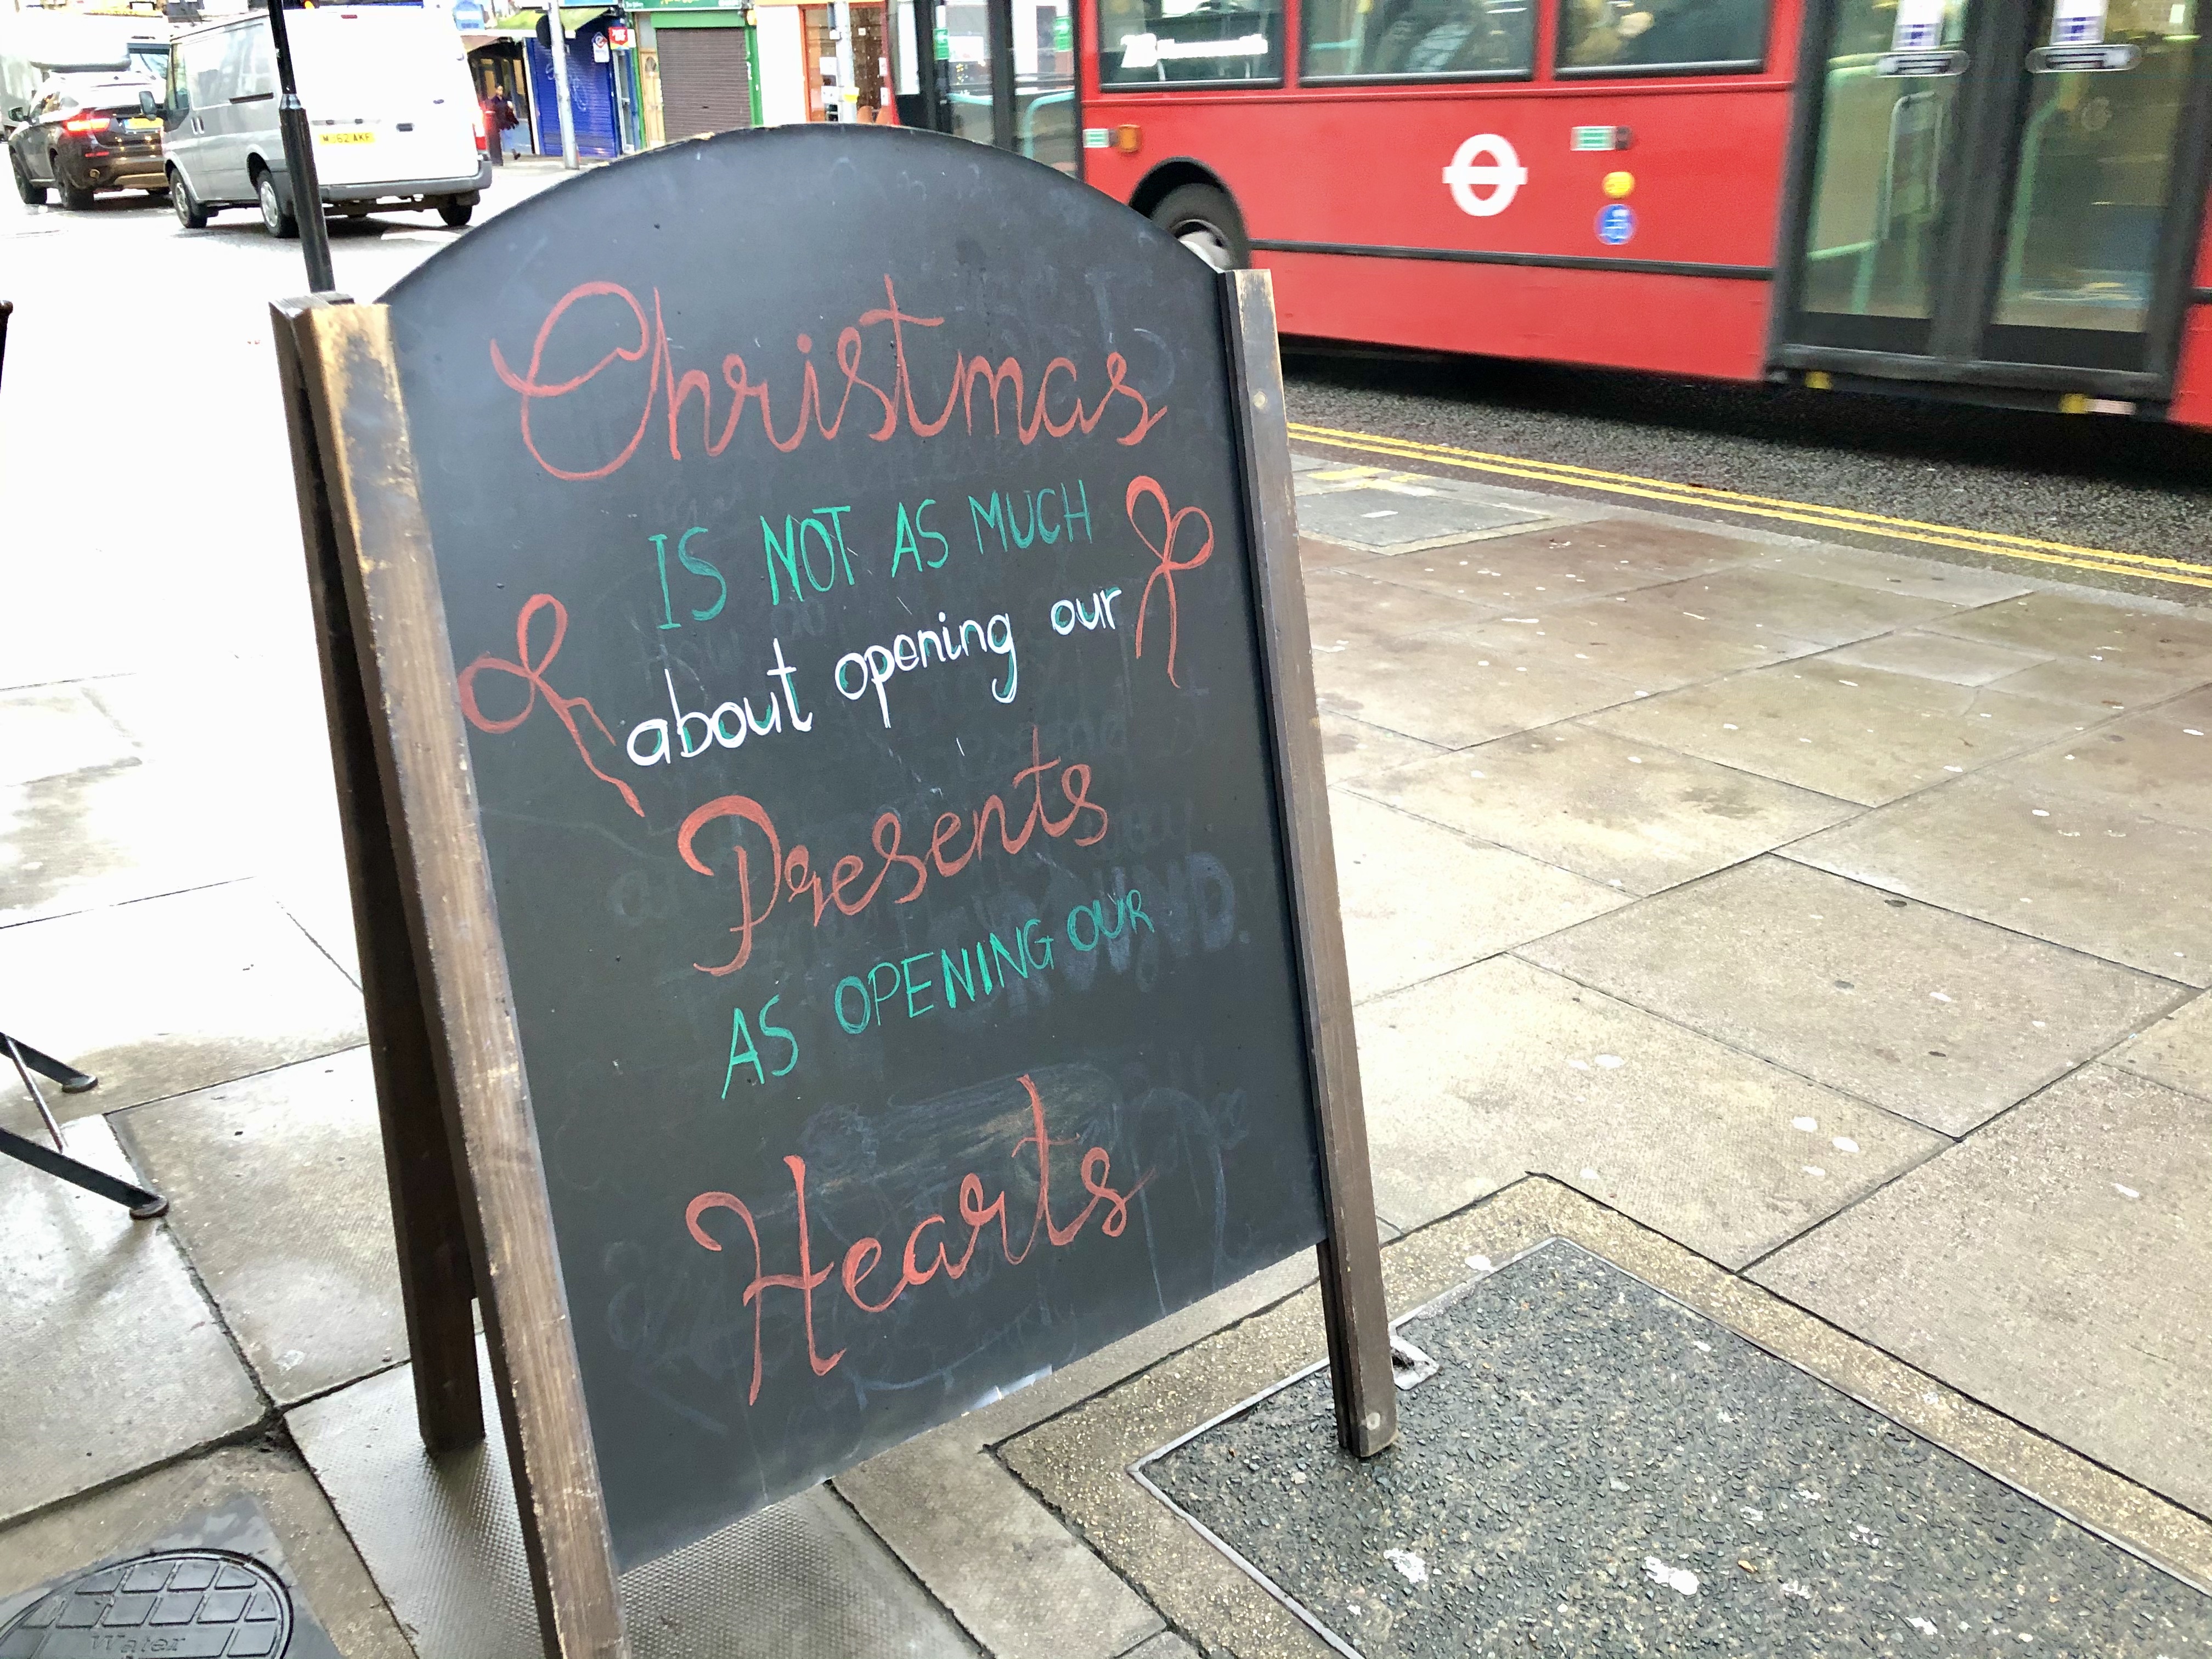 Christmas
IS NOT AS MUCH
about opening our
Presents
AS OPENING OUR
Hearts
Water